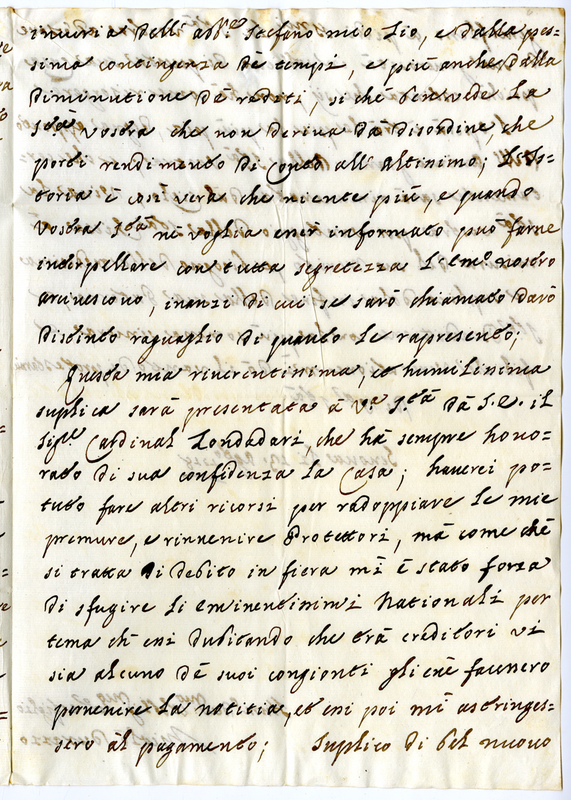 incuria dell'abb.e Stefano mio Zio, e dalla pes=
sima contingenza dè tempi, e più anche dalla
diminutione dè rediti, si chè ben vede La
S.tà Vostra che non deriva dà disordine, che
porti rendimento di conto all'Altissimo; L'Is=
toria è così vera che niente più, e quando
Vostra S.tà nè voglia esser informato può farne
interpellare con tutta segretezza L'Em.o nostro
arcivescovo, inanzi di cui se sarò chiamato darò
distinto raguaglio di quanto Le rapresento;
Questa mia riverentissima, et humilissima
suplica sarà presentata à V.a S.tà dà S.E. il
Sig.re Cardinal Zondadari, che hà sempre hono=
rato di sua confidenza La Casa; haverei po=
tuto fare altri ricorsi per radoppiare Le mie
premure, e rinvenire Protettori, mà come chè
si tratta di debito in fiera mi è stato forza
di sfugire Li Eminentissimi Nationali per
tema ch'essi dubitando che trà creditori vi
sia alcuno dè suoi congionti gliene facessero
pervenire La notitia, et essi poi mi astringes=
sero àl pagamento; Suplico di bel nuovo